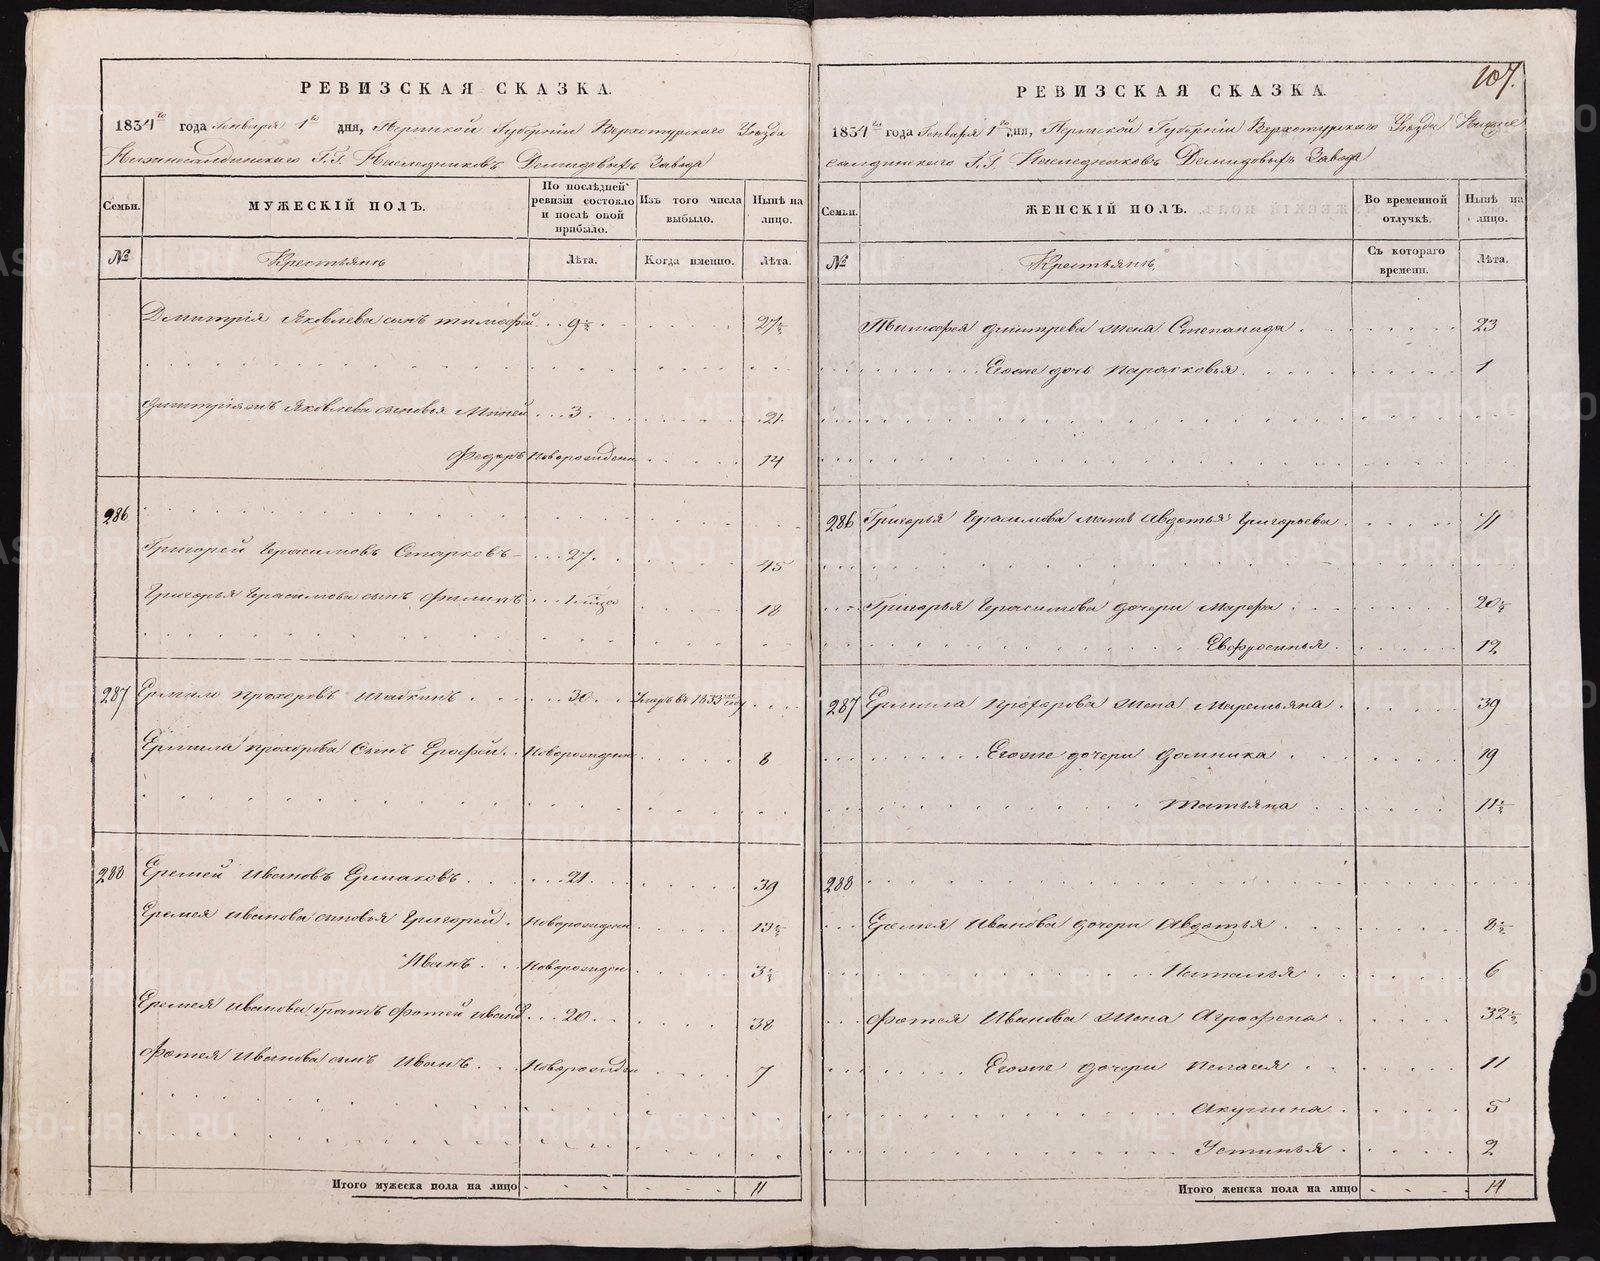 РЕВИЗСКАЯ СКАЗКА.
1834го года Генваря 1го дня, Пермской Губернiи Верхотурскаго Уезда
Нижнесалдинскаго Г.Г. Наследниковъ Демидовыхъ Завода
Семьи.
МУЖЕСКIЙ ПОЛЪ.
По послѣдней ревизiи состояло и послѣ оной прибыло.
Изъ того числа выбыло.
Нынѣ на лицо.
№
Крестьянъ
Лѣта.
Когда именно.
Лѣта.
Дмитрiя Яковлева сынъ Тимофей 9½ 27½
Дмитрiя Яковлева сыновья Миней 3 21
Федоръ Новорожден 14
286
Григорей Герасимовъ Старковъ 27 45
Григорья Герасимова сынъ Филипъ 18
287 Ермило Прохоровъ Шабкинъ 30 Умеръ въ 1833мъ году
Ермила Прохорова сынъ Ерофей Новорожден 8
288 Еремей Ивановъ Ермаковъ 21 39
Еремея Иванова сыновья Григорей Новорожден 13½
Иванъ Новорожден 3½
Еремея Иванова братъ Фотей Ивановъ 20 38
Фотея Иванова сынъ Иванъ Новорожден 7
Итого мужеска пола на лицо 11
107.
РЕВИЗСКАЯ СКАЗКА.
1834го года Генваря 1го дня, Пермской Губернiи Верхотурскаго Уезда Нижне
салдинскаго Г.Г. Наследниковъ Демидовыхъ Завода
Семьи.
ЖЕНСКIЙ ПОЛЪ.
Во временной отлучкѣ.
Нынѣ на лицо.
№
Крестьянъ
Съ котораго времени.
Лѣта.
Тимофея Дмитрева жена Степанида 23
Егоже дочь Парасковья 1
286 Григорья Герасимова мать Авдотья Григорьева 71
Григорья Герасимова дочери Марефа 20½
Евфросинья 12
287 Ермила Прохорова жена Маремьяна 39
Егоже дочери Домника 19
Татьяна 11½
288
Еремея Иванова дочери Авдотья 8½
Наталья 6
Фотея Иванова жена Агрофена 32½
Егоже дочери Пелагея 11
Акулина 5
Устинья 2
Итого женска пола на лицо 14
METRIKI.GASO-URAL.RU